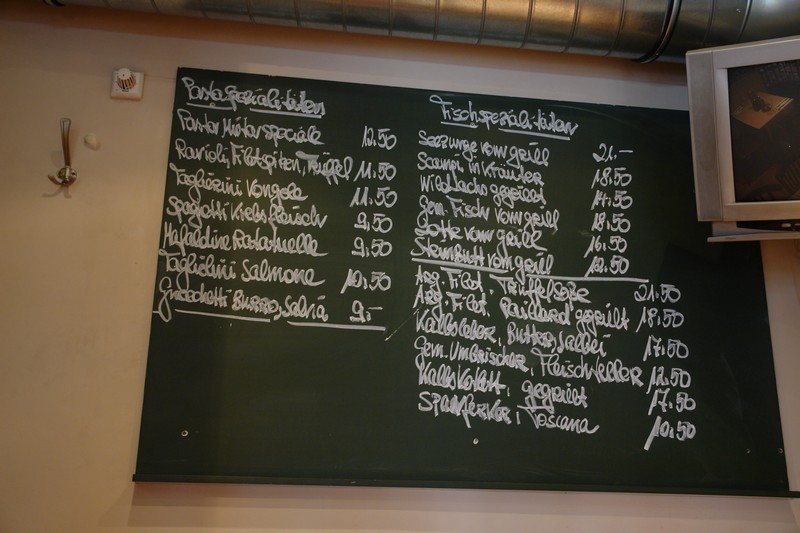 Pastaspezialitäten
Pasta Mista speciale 12.50
Ravioli, Filetspitzen, Trüffel 11.50
Tagliolini Vongole 11.50
Spaghetti Krebsfleisch 9.50
Mafaldine Ratatuelle 9.50
Tagliolini Salmone 10.50
Gnocchetti Burro, Salvia 9.-
Fischspezialitäten
Seezunge vom grill 21.-
Scampi in Kräuter 18.50
Wildlachs gegrillt 14.50
Gem. Fisch vom grill 18.50
vom grill 16.50
Steinbutt vom grill 18.50
Arg. Filet, Trüffelsoße 21.50
Arg. Filet, Paillard gegrillt 18.50
Kalbsleber, Butter, Salbei 17.50
Gem. Umbrischer, Fleischteller 12.50
Kalbskotelett, gegrillt 17.50
Spanferkel, Toscana 10.50